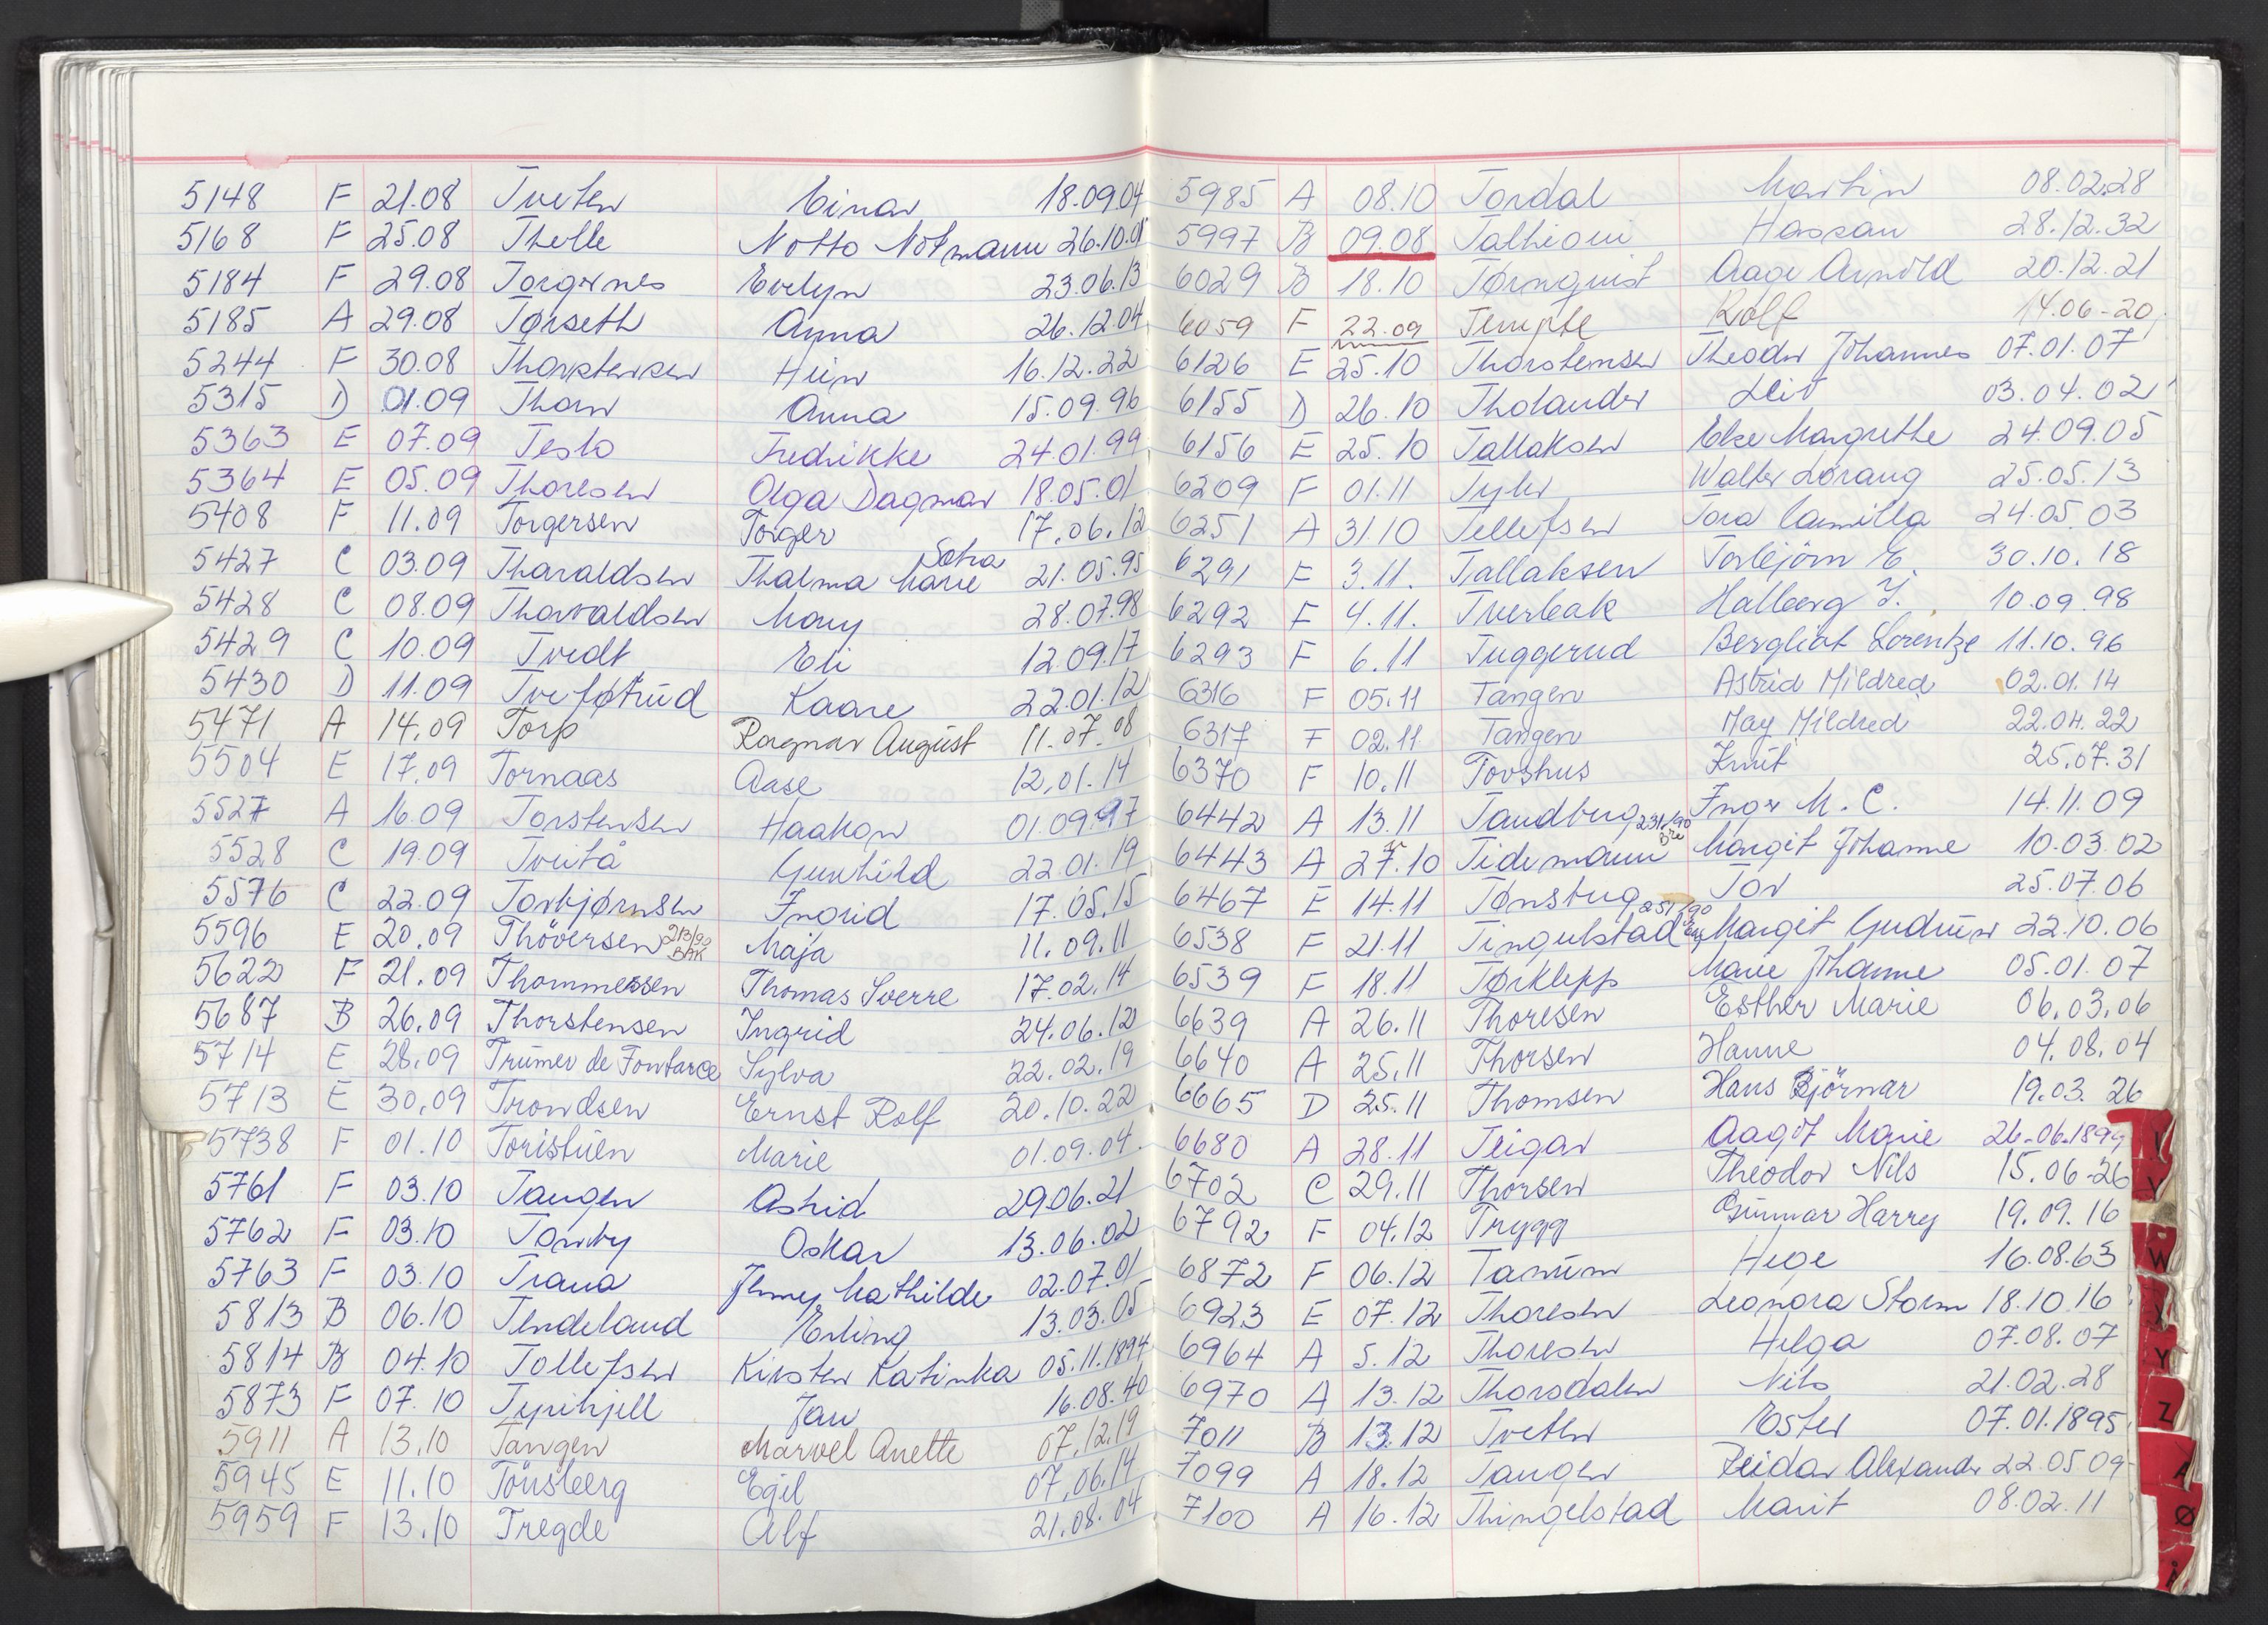 5148 F 21.08 Tveten Einar 18.09.04
5168 F 25.08 Thelle Notto Notmann 26.10.01
5184 F 29.08 Torgernes Evelyn 23.06.13
5185 A 29.08 Tørseth Anna 26.12.04
5244 F 30.08 Thorstensen 16.12.22
5315 D 01.09 Thorn Anna 15.09.96
5363 E 07.09 Teslo Fredrikke 24.01.99
5364 E 05.09 Thoresen Olga Dagmar 18.05.01
5408 F 11.09 Torgersen Torger 17.06.12
5427 C 03.09 Tharaldsen Thalma Marie 21.05.95
5428 C 08.09 Thorvaldsen Mary 28.07.98
5429 C 10.09 Tvedt Eli 12.09.17
5430 D 11.09 Kaare 22.01.12
5471 A 14.09 Torp Ragnar August 11.07.08
5504 E 17.09 Tornaas Aase 12.01.14
5527 A 16.09 Torstensen Haakon 01.09.97
5528 C 19.09 Tveitå Gunhild 22.01.19
5576 C 22.09 Torbjørnsen Ingrid 17.05.15
5596 E 20.09 Thöversen 213/90 BAK Maja 11.09.11
5622 F 21.09 Thommessen Thomas Sverre 17.02.14
5687 B 26.09 Thorstensen Ingrid 24.06.12
5714 E 28.09 Trumer de Fontarce Sylva 22.02.19
5713 E 30.09 Trondsen Ernst Rolf 20.10.22
5738 F 01.10 Toristuen Marie 01.09.04
5761 F 03.10 Tangen Astrid 29.06.21
5762 F 03.10 Oskar 13.06.02
5763 F 03.10 Trana Jenny Mathilde 02.07.01
5813 B 06.10 Tendeland Erling 13.03.05
5814 B 04.10 Tollefsen Kirsten Katinka 05.11.1894
5873 F 07.10 Tyrihjell Jan 16.08.40
5911 A 13.10 Tangen Marvel Anette 07.12.19
5945 E 11.10 Tönsberg Egil 07.06.14
5959 F 13.10 Tregde Alf 21.08.04
5985 A 08.10 Tordal Martin 08.02.28
5997 B 09.08 Talhioui Hassan 28.12.32
6029 B 18.10 Tørnquist Aage Arnold 20.12.21
6059 F 22.09 Tempte Rolf 14.06-20
6126 E 25.10 Thorstensen Theodor Johannes 07.01.07
6155 D 26.10 Tholander Leiv 03.04.02
6156 E 25.10 Tallaksen Else Margrethe 24.09.05
6209 F 01.11 Tyler Walter Lorang 25.05.13
6251 A 31.10 Tellefsen Tora Camilla 24.05.03
6291 F 3.11. Tallaksen Torbjörn E. 30.10.18
6292 F 4.11. Tverbak Halberg J. 10.09.98
6293 F 6.11 Tuggerud Bergliot Lorentze 11.10.96
6316 F 05.11 Tangen Astrid Mildred 02.01.14
6317 F 02.11 Tangen May Mildred 22.04.22
6370 F 10.11 Tovshus Knut 25.07.31
6442 A 13.11 Tandberg Inger M. C. 14.11.09
6443 A 27.10 Tidemann Margit Johanne 10.03.02
6467 E 14.11 Tønsberg Tor 25.07.06
6538 F 21.11 Tingulstad Margit Gudrun 22.10.06
6539 F 18.11 Tørklepp Marie Johanne 05.01.07
6639 A 26.11 Thoresen Esther Marie 06.03.06
6640 A 25.11 Thorsen Hanne 04.08.04
6665 D 25.11 Thomsen Hans Björnar 19.03.26
6680 A 28.11 Teigar Aagot Marie 26-06.1899
6702 C 29.11 Thorsen Theodor Nils 15.06-26
6792 F 04.12 Trygg Gunnar Harry 19.09.16
6872 F 06.12 Tanum Hege 16.08.63
6923 E 07.12 Thoresen Leonora Storm 18.10.16
6964 A 5.12 Thoresen Helga 07.08.07
6970 A 13.12 Thorsdalen Nils 21.02.28
7011 B 13.12 Tveten Ester 07.01.1895
7099 A 18.12 Tangen Reidar Alexander 22.05.09
7100 A 16.12 Thingelstad Marit 08.02.11
W
Y
Z
Ø